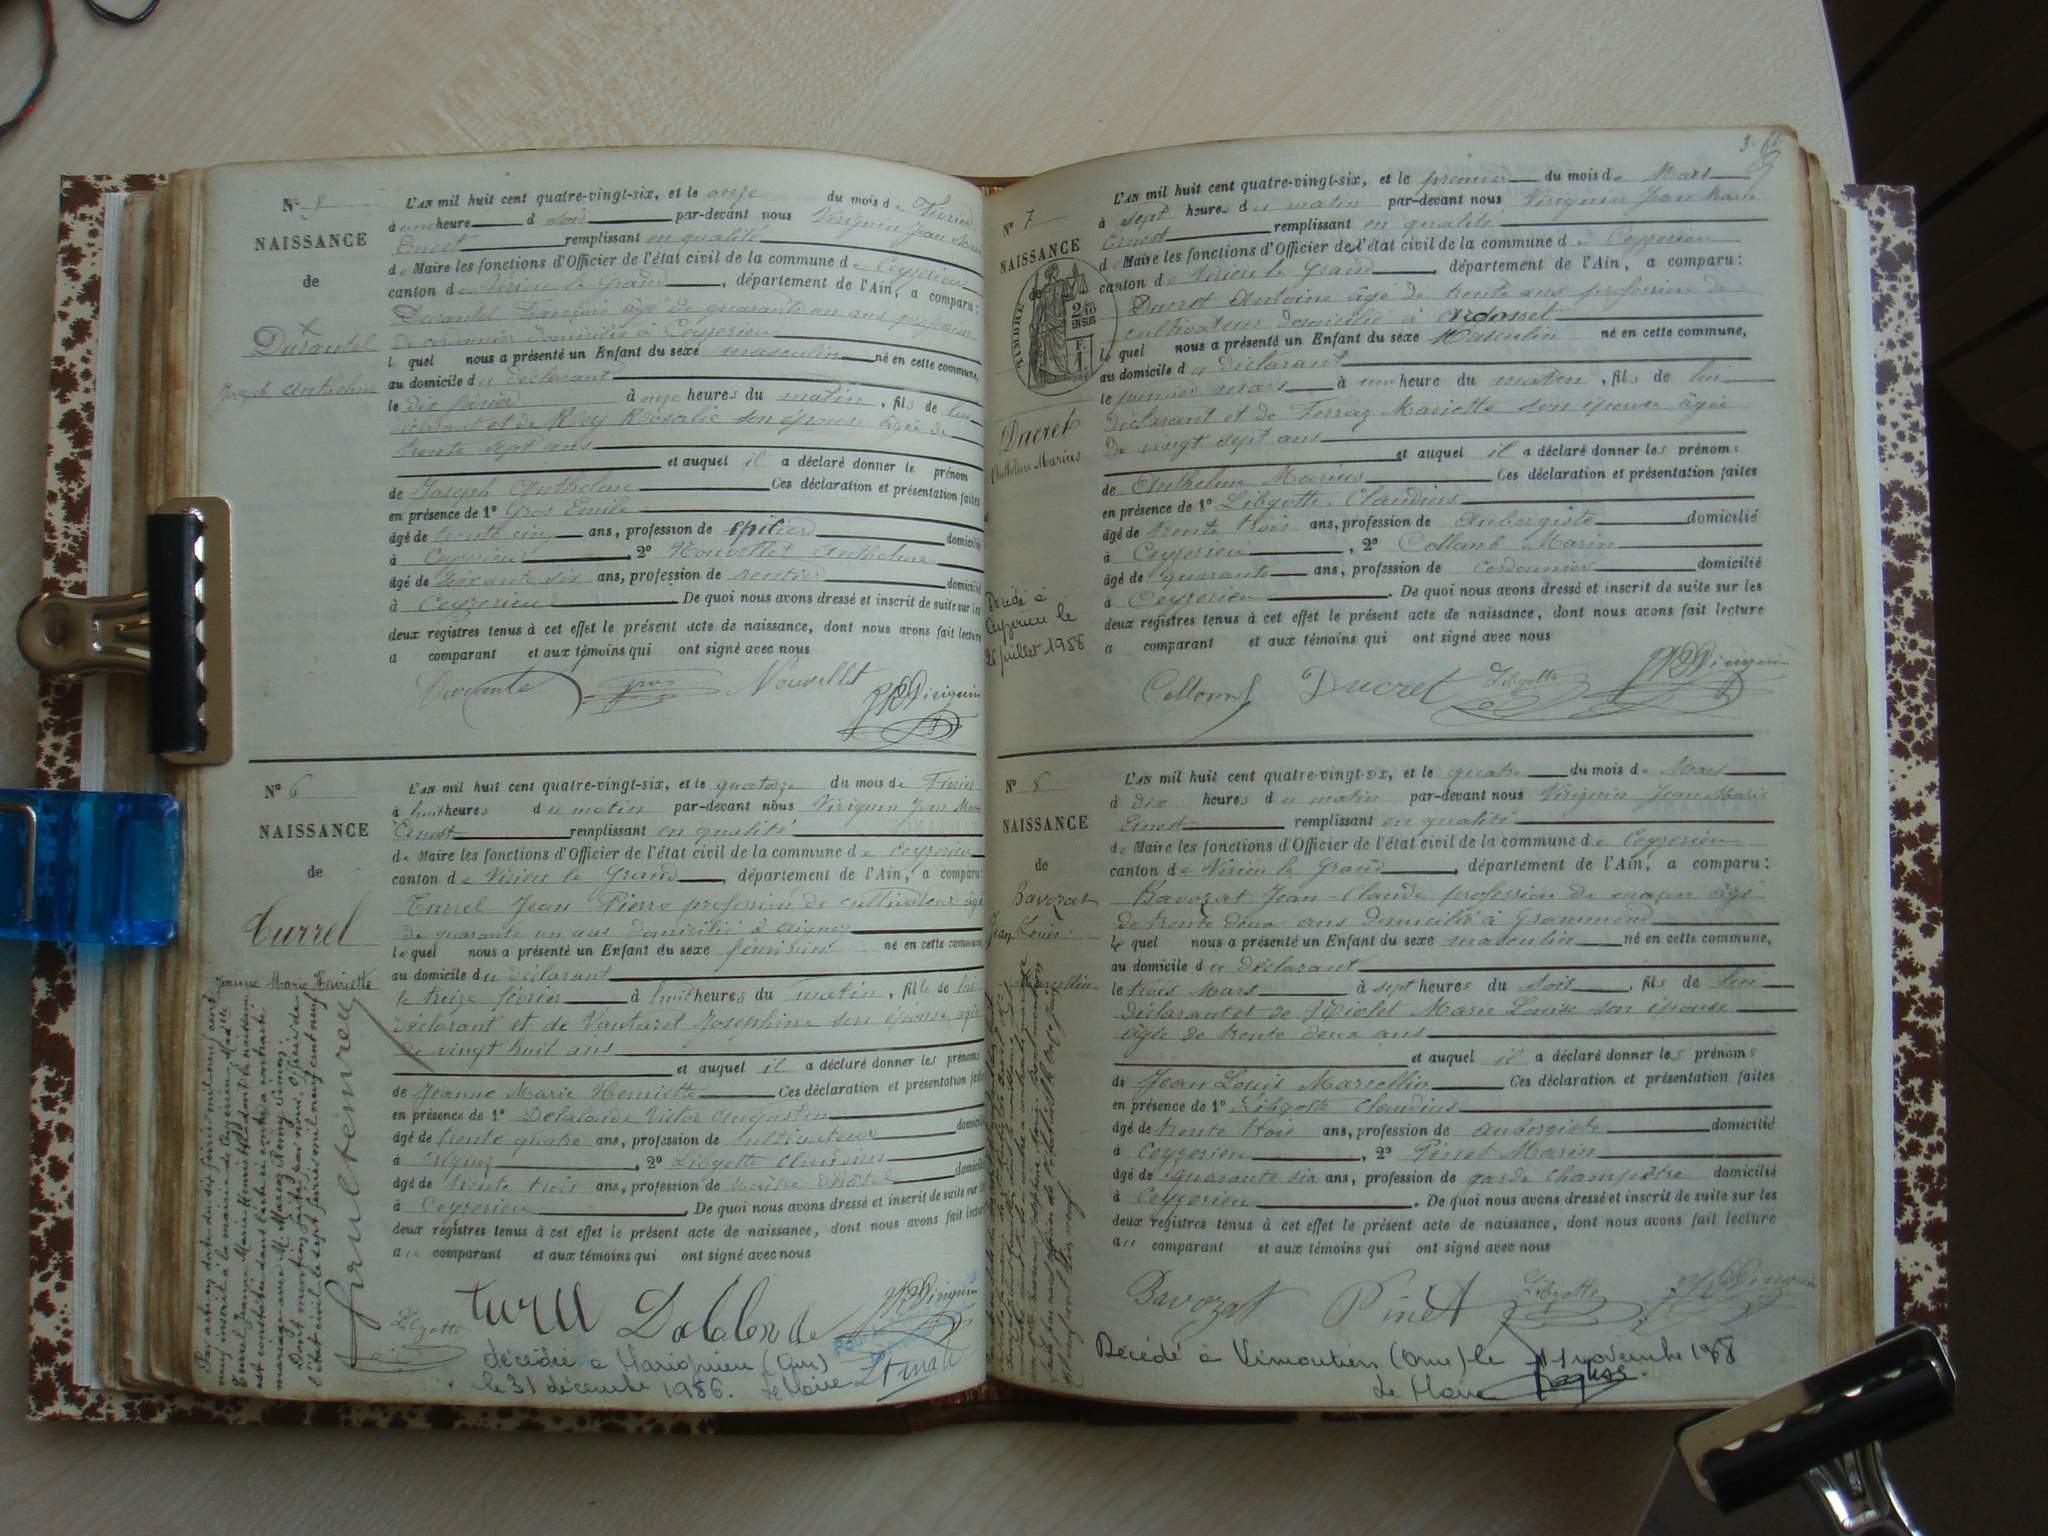 N° 5
NAISSANCE
de
Durantel
Joseph Anthelme
L'AN mil huit cent quatre-vingt-six, et le onze du mois de Février
à une heure d soir par-devant nous Viriguin Jean Marie
Ernest remplissant en qualité
de Maire les fonctions d'Officier de l'état civil de la commune de Ceyzerieu
canton de Virieu le Grand, département de l'Ain, a comparu :
Durantel François âgé de quarante un ans profession
de cordonnier domicilié à Ceyzerieu
lequel nous a présenté un Enfant du sexe masculin né en cette commune,
au domicile du déclarant
le dix février à onze heures du matin, fils de lui
déclarant et de Rey Rosalie son épouse âgée de
trente sept ans
et auquel il a déclaré donner le prénom
de Joseph Anthelme Ces déclaration et présentation faites
en présence de 1° Gros Emile
âgé de trente cinq ans, profession de épicier domicilié
à Ceyzerieu, 2° Nouvellet Anthelme
âgé de soixante six ans, profession de rentier domicilié
à Ceyzerieu. De quoi nous avons dressé et inscrit de suite sur les
deux registres tenus à cet effet le présent acte de naissance, dont nous avons fait lecture
a comparant et aux témoins qui ont signé avec nous
gros Nouvellet Viriguin
N° 6
NAISSANCE
de
Turrel
Jeanne Marie Henriette
L'AN mil huit cent quatre-vingt-six, et le quatorze du mois de Février
à huit heures du matin par-devant nous Viriguin Jean Marie
Ernest remplissant en qualité
de Maire les fonctions d'Officier de l'état civil de la commune de Ceyzerieu
canton de Virieu le Grand, département de l'Ain, a comparu :
Turrel Jean Pierre profession de cultivateur âgé
de quarante un ans domicilié à Aignoz
lequel nous a présenté un Enfant du sexe féminin né en cette commune,
au domicile du déclarant
le treize février à huit heures du matin, fille de lui
déclarant et de Vautaret Josephine son épouse âgée
de vingt huit ans
et auquel il a déclaré donner les prénoms
de Jeanne Marie Henriette Ces déclaration et présentation faites
en présence de 1° Delalande Victor Augustin
âgé de trente quatre ans, profession de cultivateur domicilié
à Aignoz, 2° Libgotte Claudius
âgé de trente trois ans, profession de maître d'hôtel domicilié
à Ceyzerieu. De quoi nous avons dressé et inscrit de suite sur les
deux registres tenus à cet effet le présent acte de naissance, dont nous avons fait lecture
au comparant et aux témoins qui ont signé avec nous
Libgotte Turel Dalalande Viriguin
décédée à Marignieu (Ain)
le 31 décembre 1986. Le Maire
Par acte en date du dix février mil neuf cent
neuf inscrit à la mairie de Ceyzerieu, Mad^elle
Turrel Jeanne Marie Henriette dont la naissance
est constatée dans l'acte ci contre a contracté
mariage avec M. Marcoz Rémy Simon.
Dont mention faite par nous, Officier de
l'état civil le sept février mil neuf cent neuf
N° 7
NAISSANCE
de
TIMBRE
2/10
EN SUS
F.
1
Ducret
Anthelme Marius
Décédé à
Ceyzerieu le
26 juillet 1958
L'AN mil huit cent quatre-vingt-six, et le premier du mois de Mars
à sept heures du matin par-devant nous Viriguin Jean Marie
Ernest remplissant en qualité
de Maire les fonctions d'Officier de l'état civil de la commune de Ceyzerieu
canton de Virieu le Grand, département de l'Ain, a comparu :
Ducret Antoine âgé de trente ans profession de
cultivateur domicilié à Ardosset
lequel nous a présenté un Enfant du sexe Masculin né en cette commune,
au domicile du déclarant
le premier mars à une heure du matin, fils de lui
déclarant et de Ferraz Mariette son épouse âgée
de vingt sept ans
et auquel il a déclaré donner les prénoms
de Anthelme Marius Ces déclaration et présentation faites
en présence de 1° Libgotte Claudius
âgé de trente trois ans, profession de Aubergiste domicilié
à Ceyzerieu, 2° Collomb Marin
âgé de quarante ans, profession de cordonnier domicilié
à Ceyzerieu. De quoi nous avons dressé et inscrit de suite sur les
deux registres tenus à cet effet le présent acte de naissance, dont nous avons fait lecture
a comparant et aux témoins qui ont signé avec nous
Collomb Ducret Libgotte Viriguin
N° 8
NAISSANCE
de
Bavozat
Jean Louis
Marcellin
L'AN mil huit cent quatre-vingt-six, et le quatre du mois de Mars
à dix heures du matin par-devant nous Viriguin Jean Marie
Ernest remplissant en qualité
de Maire les fonctions d'Officier de l'état civil de la commune de Ceyzerieu
canton de Virieu le Grand, département de l'Ain, a comparu :
Bavozat Jean Claude profession de maçon âgé
de trente deux ans domicilié à Grammond
lequel nous a présenté un Enfant du sexe masculin né en cette commune,
au domicile du déclarant
le trois Mars à sept heures du soir, fils de lui
déclarant et de Marie Louise son épouse
âgée de trente deux ans
et auquel il a déclaré donner les prénoms
de Jean Louis Marcellin Ces déclaration et présentation faites
en présence de 1° Libgotte Claudius
âgé de trente trois ans, profession de aubergiste domicilié
à Ceyzerieu, 2° Pinet Marin
âgé de quarante six ans, profession de garde champêtre domicilié
à Ceyzerieu. De quoi nous avons dressé et inscrit de suite sur les
deux registres tenus à cet effet le présent acte de naissance, dont nous avons fait lecture
au comparant et aux témoins qui ont signé avec nous
Bavozat Pinet Libgotte Viriguin
Décédé à Vimoutiers (Orne) le novembre
Le Maire